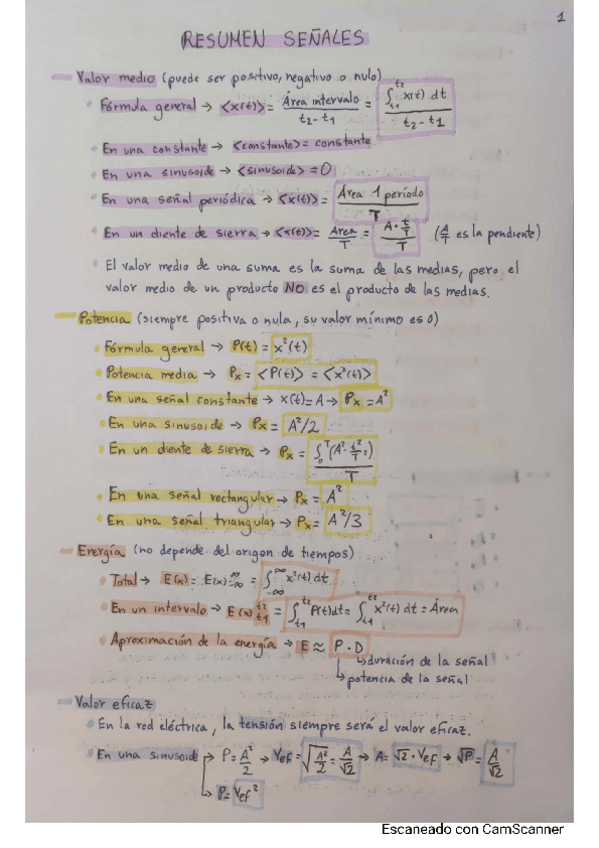 1
RESUMEN SEÑALES
Valor medio (puede ser positivo, negativo o nulo)
Fórmula general → <x(t)> = Área intervalo / t2 - t1 = ∫t1^t2 x(t) dt / t2 - t1
En una constante → <constante> = constante
En una sinusoide → <sinusoide> = 0
En una señal periódica → <x(t)> = Área 1 período / T
En un diente de sierra → <x(t)> = Área / T = A · t/T / T (A/T es la pendiente)
El valor medio de una suma es la suma de las medias, pero el
valor medio de un producto NO es el producto de las medias.
Potencia (siempre positiva o nula, su valor mínimo es 0)
Fórmula general → P(t) = x²(t)
Potencia media → Px = <P(t)> = <x²(t)>
En una señal constante → x(t) = A → Px = A²
En una sinusoide → Px = A²/2
En un diente de sierra → Px = ∫0^T (A² · t²/T²) / T
En una señal rectangular → Px = A²
En una señal triangular → Px = A²/3
Energía (no depende del origen de tiempos)
Total → E(x) = E(x)-∞^∞ = ∫-∞^∞ x²(t) dt
En un intervalo → E(x)t1^t2 = ∫t1^t2 P(t)dt = ∫t1^t2 x²(t) dt = Área
Aproximación de la energía → E ≈ P · D
↳ duración de la señal
↳ potencia de la señal
Valor eficaz
En la red eléctrica, la tensión siempre será el valor eficaz.
En una sinusoide → P = A²/2 → Vef = √(A²/2) = A/√2 → A = √2 · Vef → √P = A/√2
↳ P = Vef²
Escaneado con CamScanner